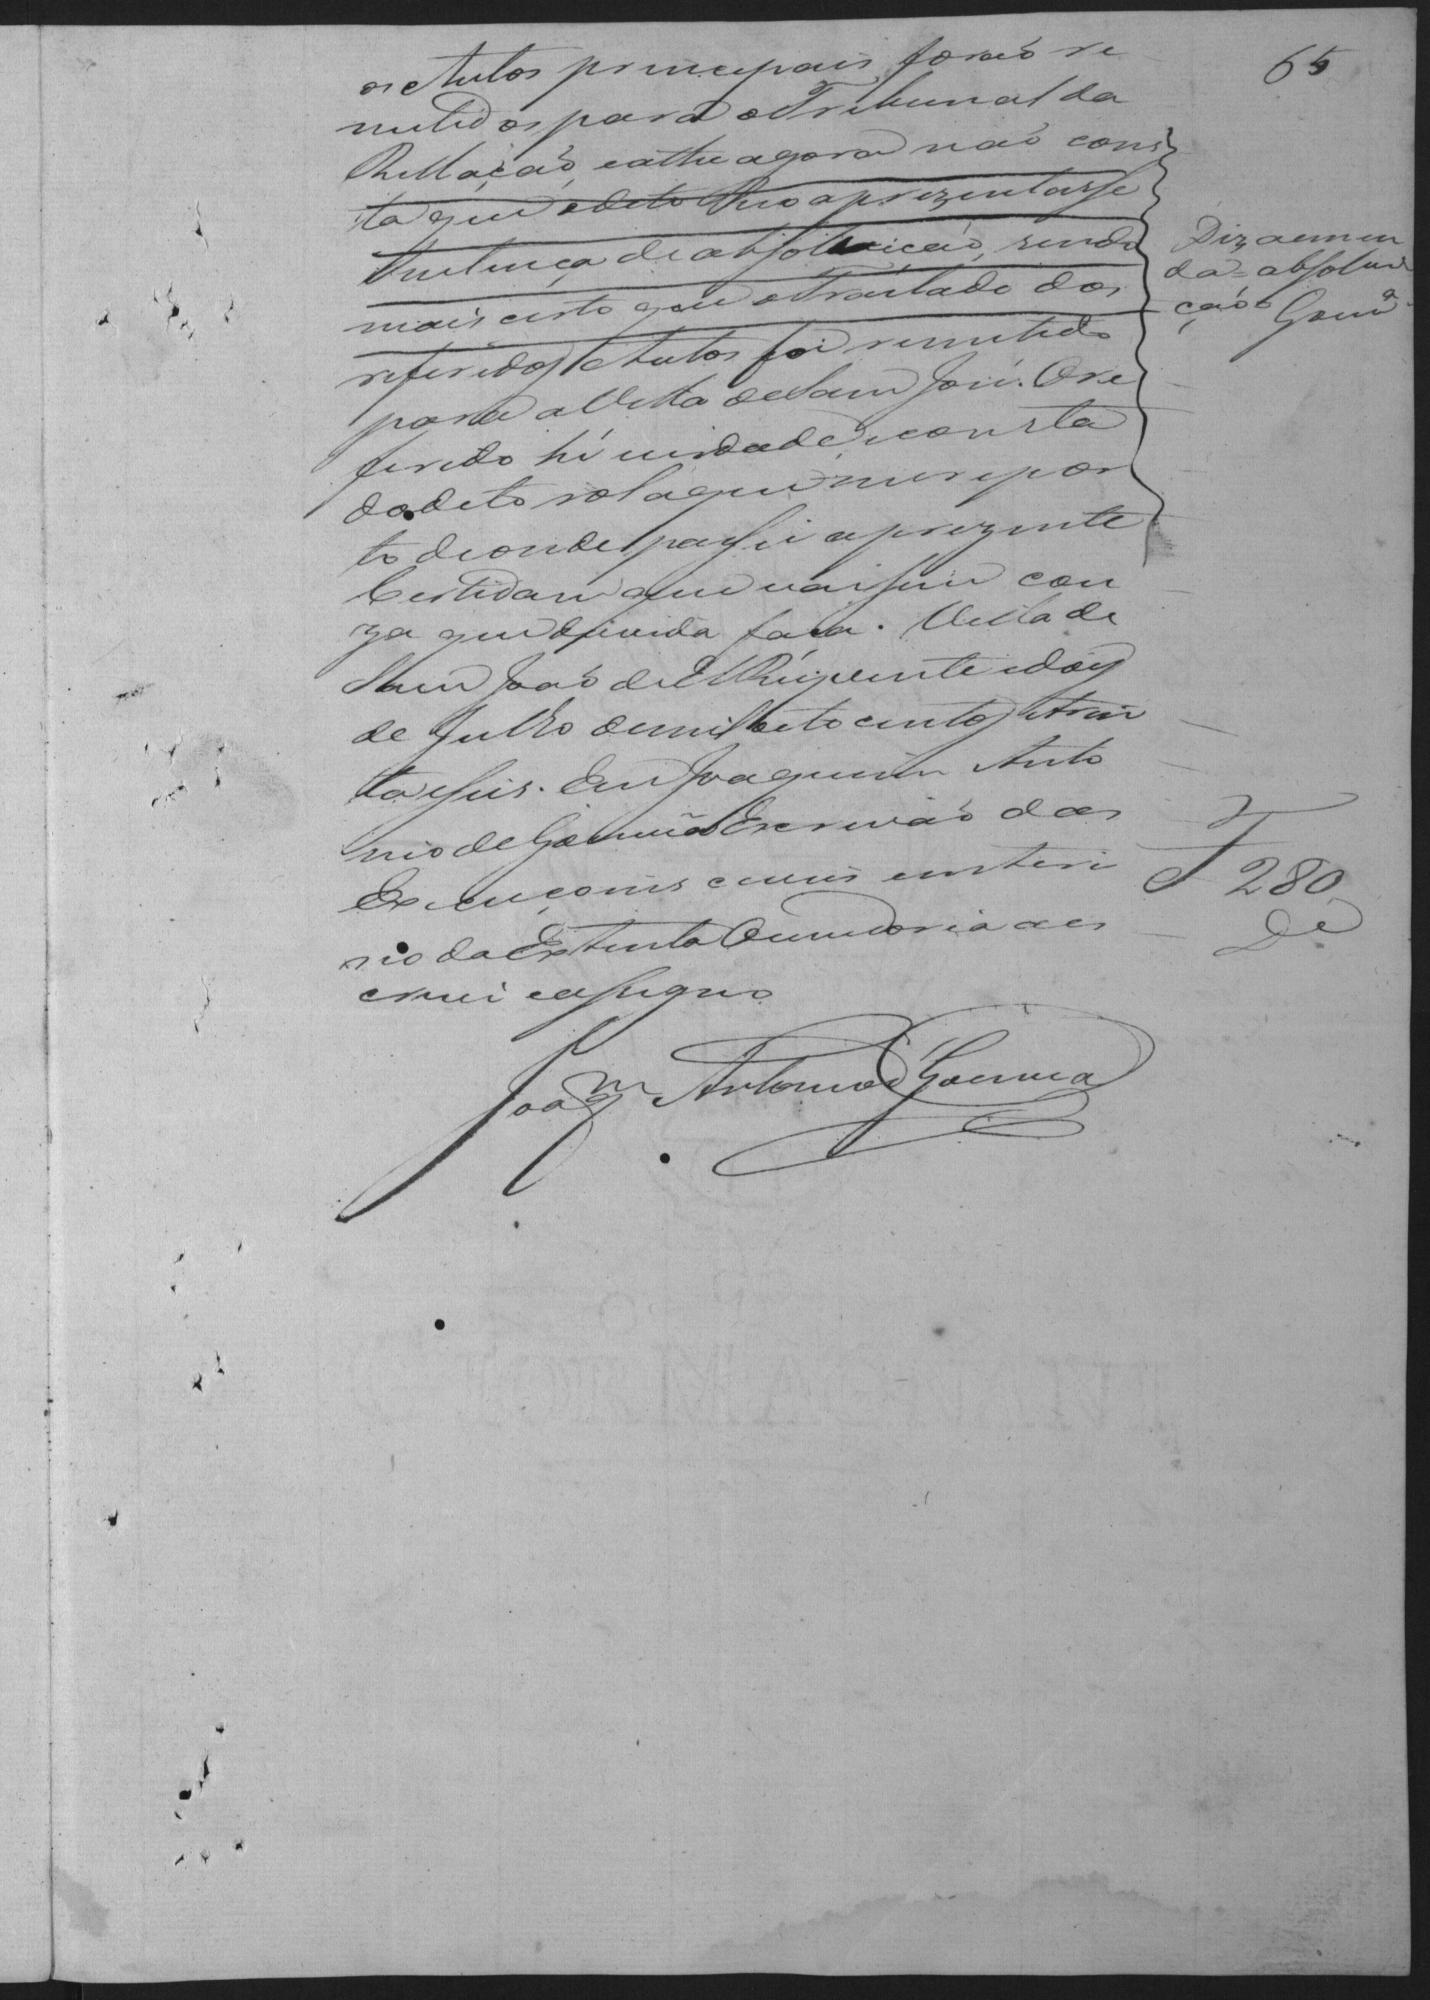 65
os Autos principais forão re
metidos para o Tribunal da
Rellação, eathe agora não cons
ta que o dito Reo aprezentasse
Sentença de absolvição, sendo
mais certo que o Traslado dos
referidos Autos foi remetido
para a Villa de Sam José. O re
ferido hé verdade, e consta
do dito rol a que me repor
to de onde passei a prezente
Certidam que vai sem cou
za que duvida faça. Villa de
Sam João d'El Rei, vinte e dois
de Julho de mil oito centos e trin
ta e seis. Eu Joaquim Anto
nio de Gouvêa Escrivão das
Execuçoins civeis e interi
no da Extinta Ouvidoria a es
crevi e assigno
Joaqm Antonio de Gouvea
Diz a emen
da = absolvi
ção Gouvª
280